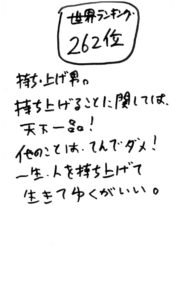 世界ランキング
262位
持ち上げ男。
持ち上げることに関しては、
天下一品!
他のことは、てんでダメ!
一生、人を持ち上げて
生きてゆくがいい。